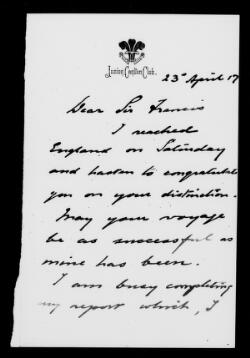 Junior Carlton Club.
23rd April 17
Dear Sir Francis
I reached
England on Saturday
and hasten to congratulate
you on your distinction.
May your voyage
be as successful as
mine has been.
I am busy completing
my report which, I